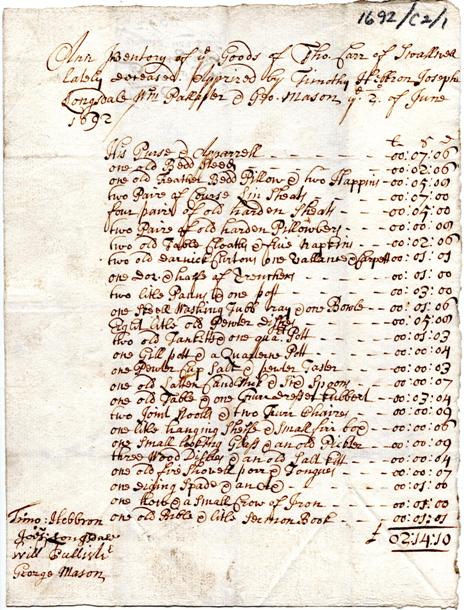 1692/C2/1
Ann Inventory of ye Goods of Tho: Carr of Swallwell
lately deceased Apprized by Timothy Hebron Joseph
Longsdale Wm Palliser & Geo: Mason ye 2 of June
1692
£ S D
His Purse & Apparrell — 00:07:06
one old Bedd Stedd — 00:02:06
one old Feather Bedd Pillow & two Happins — 00:05:09
two Paire of Course Lin Sheats — 00:07:00
four paire of old harden Sheats — 00:05:00
two Paire of old harden Pillowbers — 00:00:09
two old Table Cloaths & five Napkins — 00:02:06
two old darnick Curtons one Vallance & Carpett 00:01:01
one doz: & halfe of Trenchers — 00:01:00
two litle Panns & one pott — 00:03:00
one Washing Tubb tray & one Bowle — 00:01:06
Eight litle old Pewter dishes — 00:05:09
two old Tankitts & one qua: Pott — 00:01:03
one Gill pott & a Pott — 00:00:04
one Pewter Cup Salt & pewter Taster — 00:01:03
one old Latten Candstick & Spoons — 00:00:07
one old Table & one Firr dresser Cubbert — 00:03:04
two Joint Stools & two Firr Chaires — 00:00:09
one litle hanging Shelfe & Small firr box — 00:00:06
one Small looking Glass & an old Pickter — 00:00:09
three Wood Dishes & an old Salt kitt — 00:00:04
one old fire Shovell porr & Tongues — 00:00:07
one diging Spade & — 00:01:06
one & a Small Crow of Iron — 00:01:00
one old Bible & litle Sermon Book — 00:01:01
£ 02:14:10
Timo: Hebbron
Jos: Longsdale
Will
George Mason